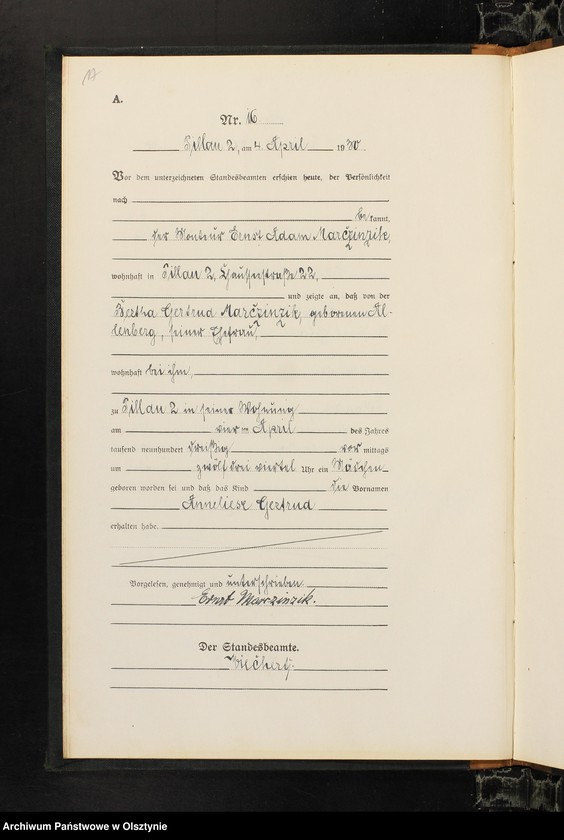 17
A.
Nr. 16
Pillau 2, am 4. April 1930
Vor dem unterzeichneten Standesbeamten erschien heute, der Persönlichkeit
nach
bekannt,
der Monteur Ernst Adam Marczinzik,
wohnhaft in Pillau 2, Chausseestraße 22,
und zeigte an, daß von der
Bertha Gertrud Marczinzik, geborenen Al-
tenberg, seiner Ehefrau,
wohnhaft bei ihm,
zu Pillau 2 in seiner Wohnung
am vierten April des Jahres
tausend neunhundert dreißig vormittags
um zwölf drei viertel Uhr ein Mädchen
geboren worden sei und daß das Kind die Vornamen
Anneliese Gertrud
erhalten habe.
Vorgelesen, genehmigt und unterschrieben.
Ernst Marczinzik.
Der Standesbeamte.
Archiwum Państwowe w Olsztynie